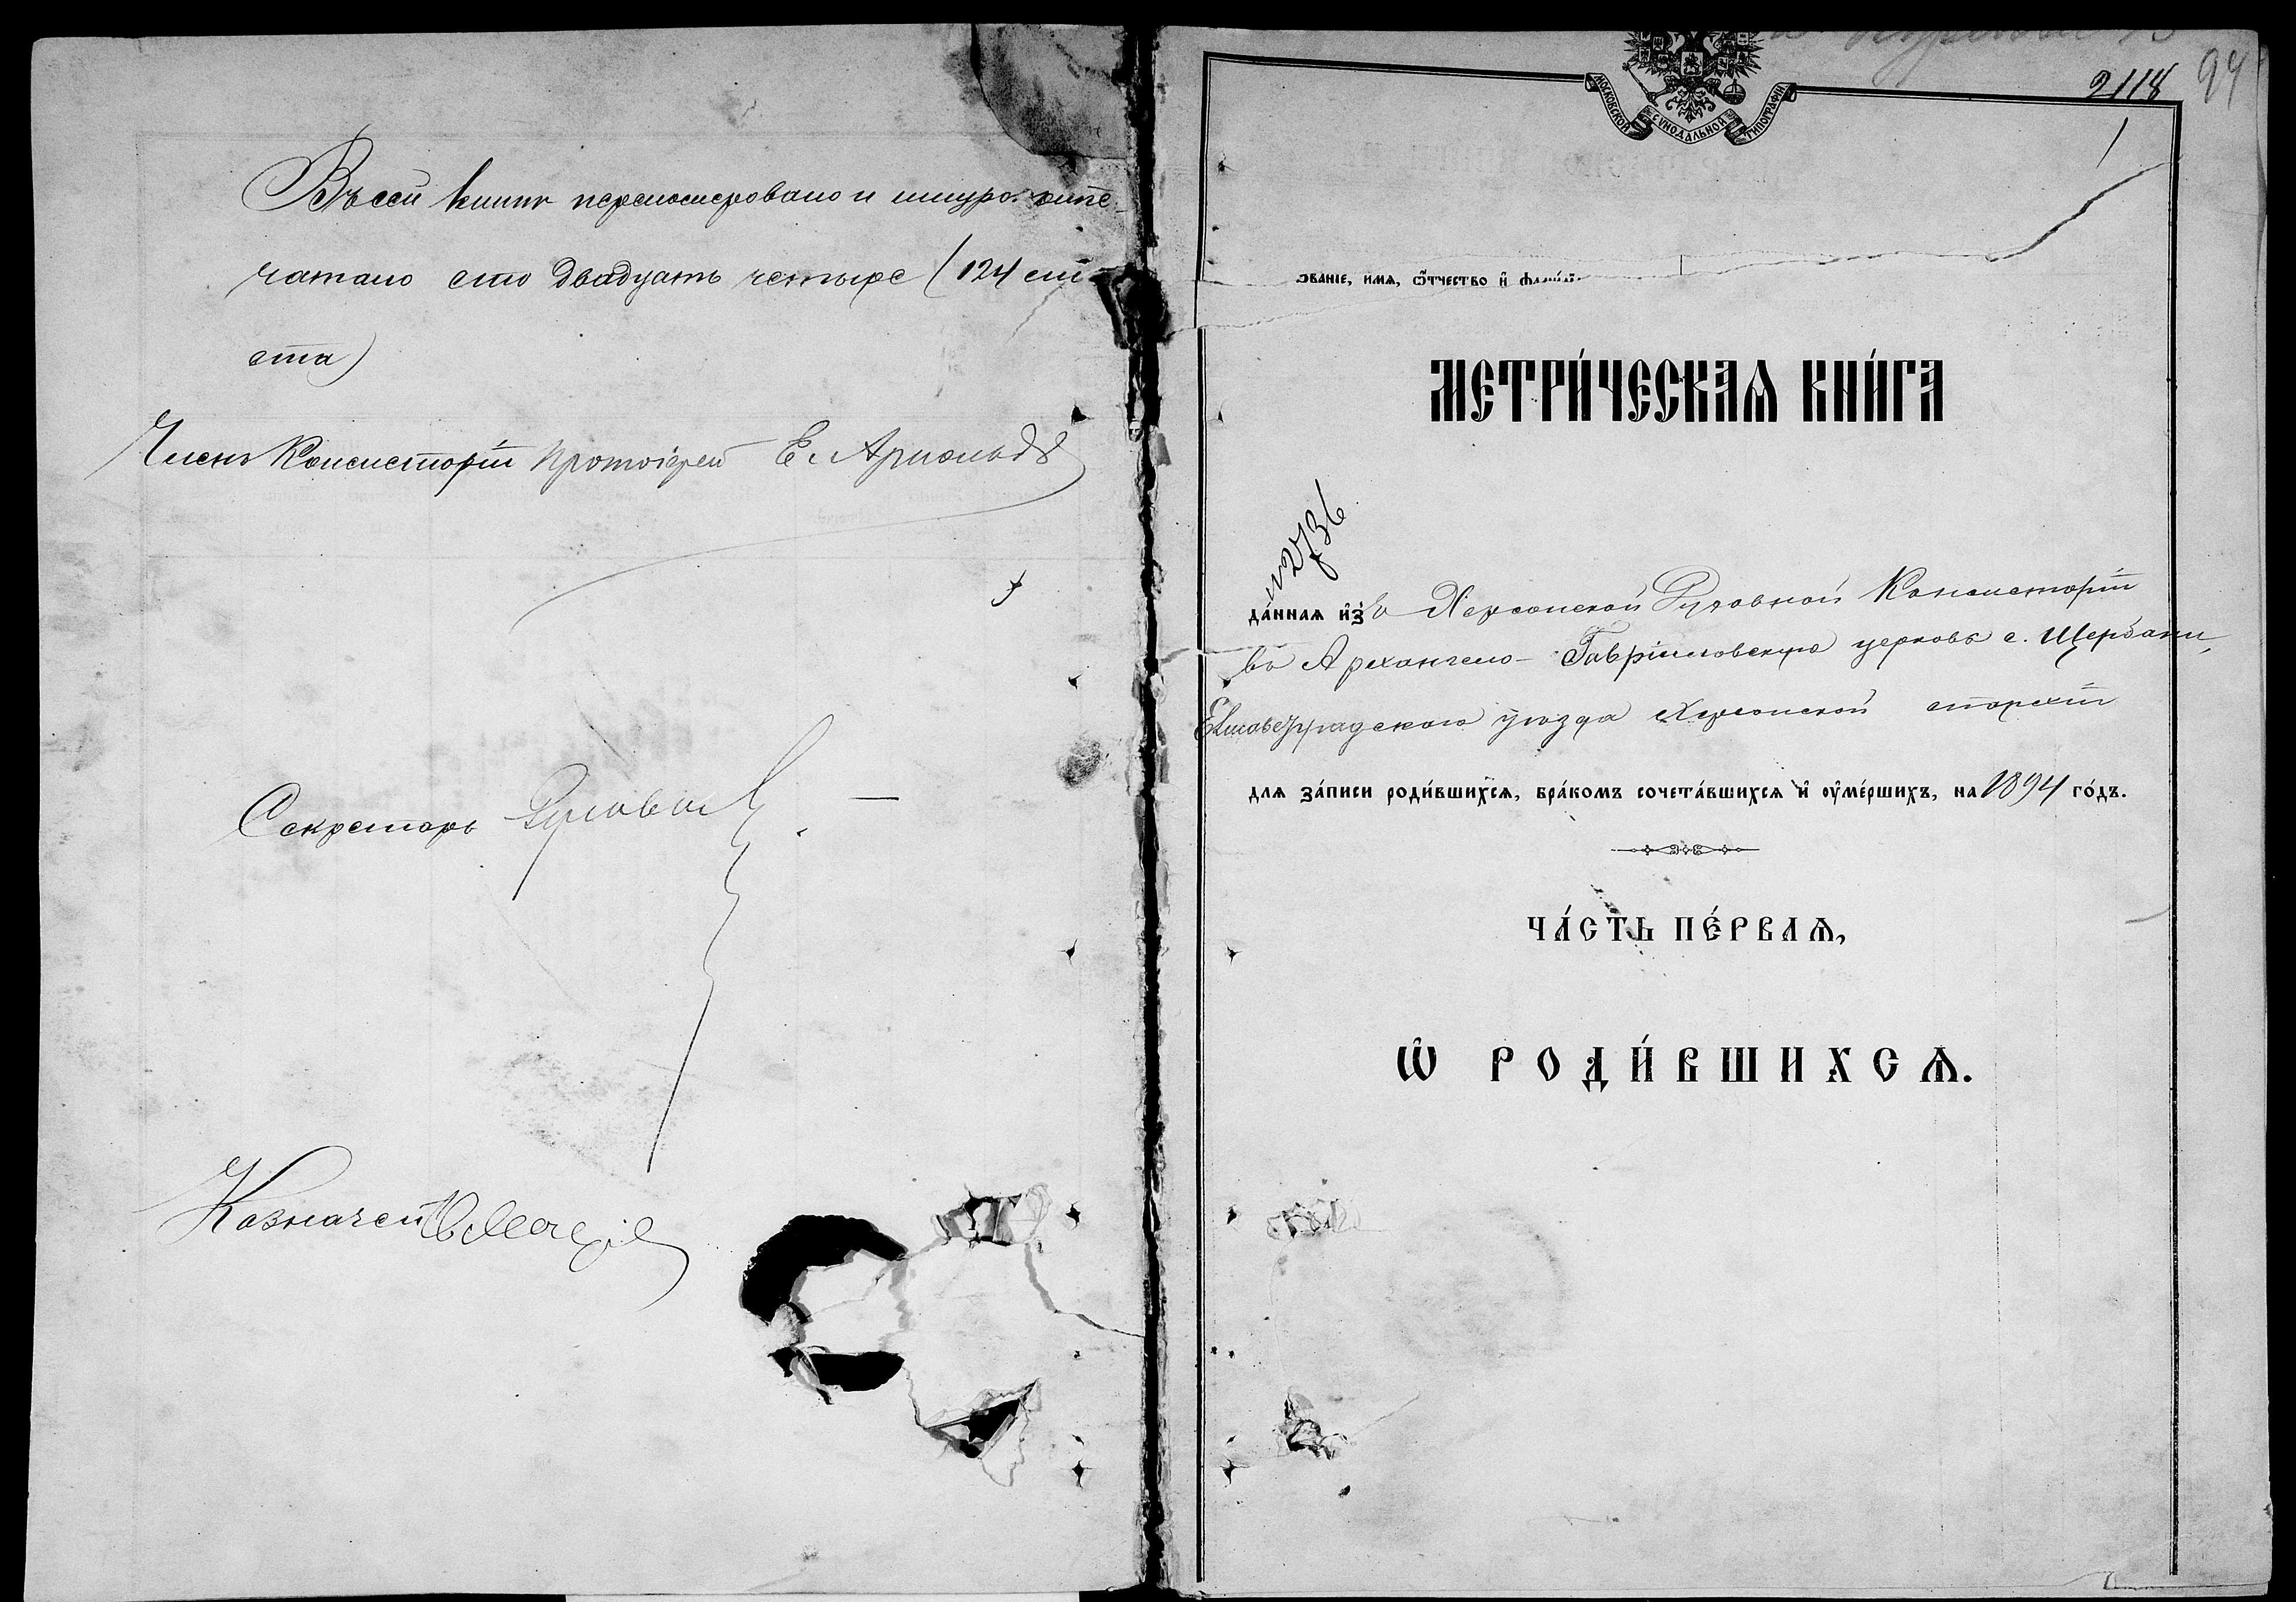 Въ сей книгѣ перенумеровано и шнуро. опе-
чатано сто двадцать четыре (124 ли-
ста)
Членъ Консисторіи Протоіерей Е. Арнольдъ
Секретарь
Казначей
2118
94
1
МОСКОВСКОЙ СѴНОДАЛЬНОЙ ТИПОГРАФІИ
ЗВАНІЕ, ИМѦ, Ѿ́ТЧЕСТВО И҆
МЕТРИ́ЧЕСКАѦ КНИ́ГА
№ 2736
ДА́ННАѦ И҆З̾ Херсонской Духовной Консисторіи
въ Архангело-Гавріиловскую церковь с. Щербани,
Елисаветградскаго уѣзда Херсонской епархіи
ДЛѦ ЗА́ПИСИ РОДИ́ВШИХСѦ, БРА́КОМЪ СОЧЕТА́ВШИХСѦ И҆ ОУ҆МЕ́РШИХЪ, НА 1894 ГО́ДЪ.
ЧА́СТЬ ПЕ́РВАѦ,
Ѡ҆ РОДИ́ВШИХСѦ.